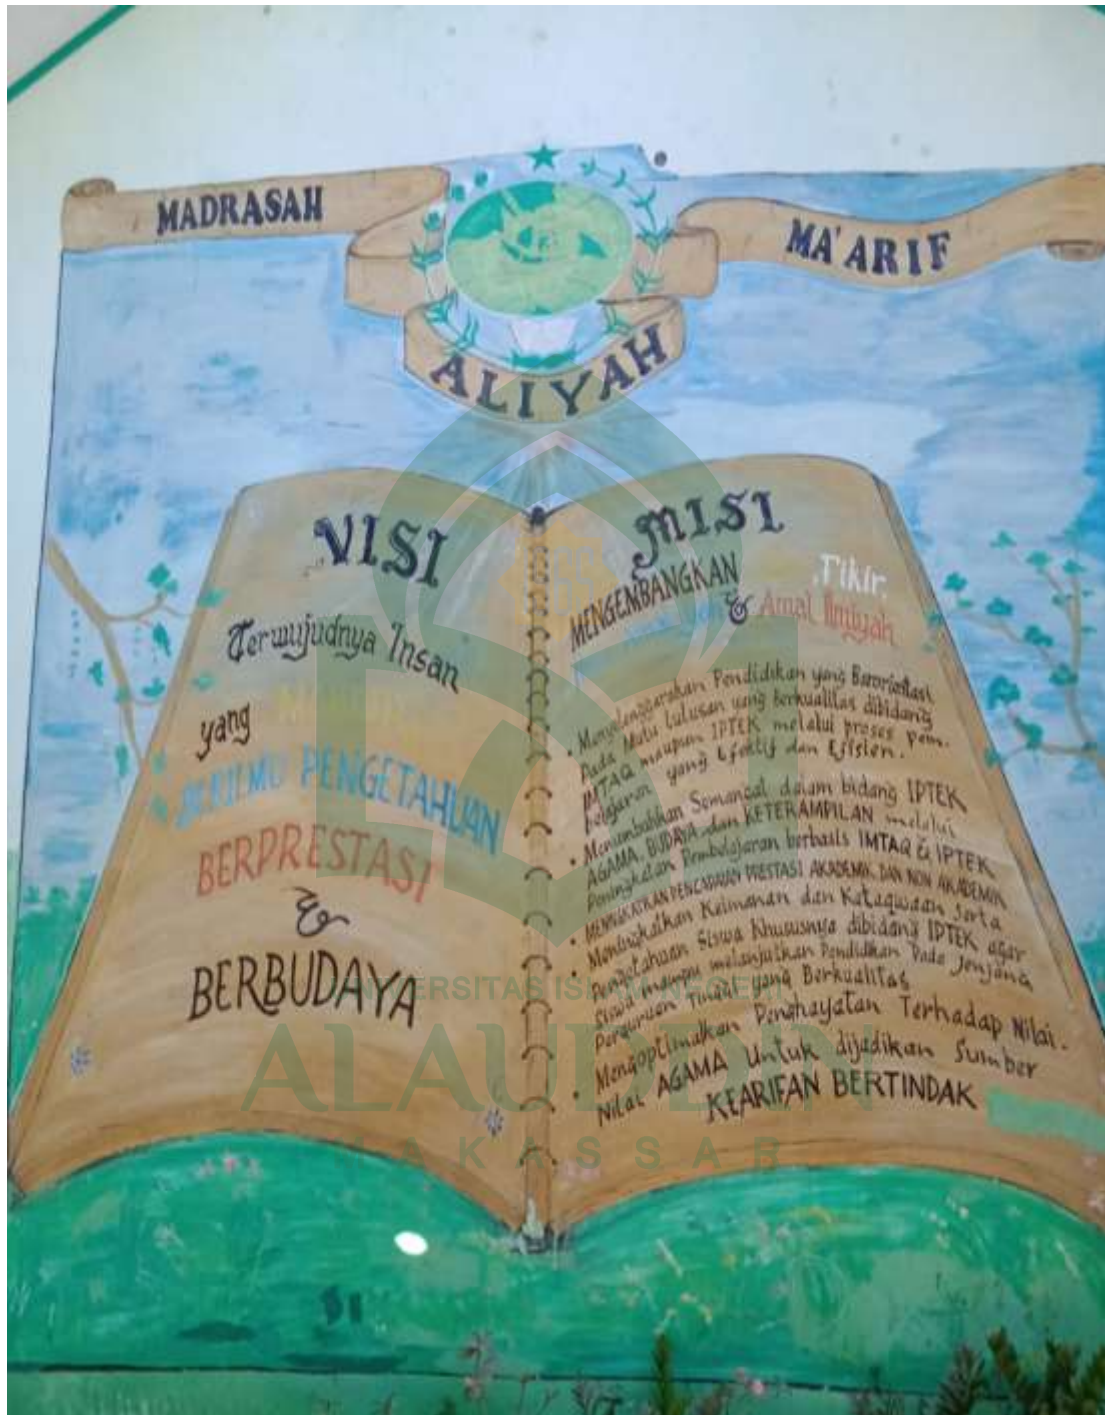 MADRASAH
ALIYAH
MA'ARIF
VISI
Terwujudnya Insan
yang
BERILMU PENGETAHUAN
BERPRESTASI
&
BERBUDAYA
MISI
MENGEMBANGKAN
Fikir,
& Amal Ilmiyah
• Menyelenggarakan Pendidikan yang Berorientasi
Pada Mutu Lulusan yang berkualitas dibidang
IMTAQ maupun IPTEK melalui proses pem-
belajaran yang Efektif dan Efisien.
• Menumbuhkan Semangat dalam bidang IPTEK
AGAMA, BUDAYA dan KETERAMPILAN melalui
Peningkatan Pembelajaran berbasis IMTAQ & IPTEK
• MENINGKATKAN PENCAPAIAN PRESTASI AKADEMIK DAN NON AKADEMIK
• Meningkatkan Keimanan dan Ketaqwaan serta
Pengetahuan Siswa khususnya dibidang IPTEK agar
Siswa mampu melanjutkan Pendidikan Pada Jenjang
Perguruan Tinggi yang Berkualitas
• Mengoptimalkan Penghayatan Terhadap Nilai-
Nilai AGAMA Untuk dijadikan Sumber
KEARIFAN BERTINDAK
UNIVERSITAS ISLAM NEGERI
ALAUDDIN
MAKASSAR